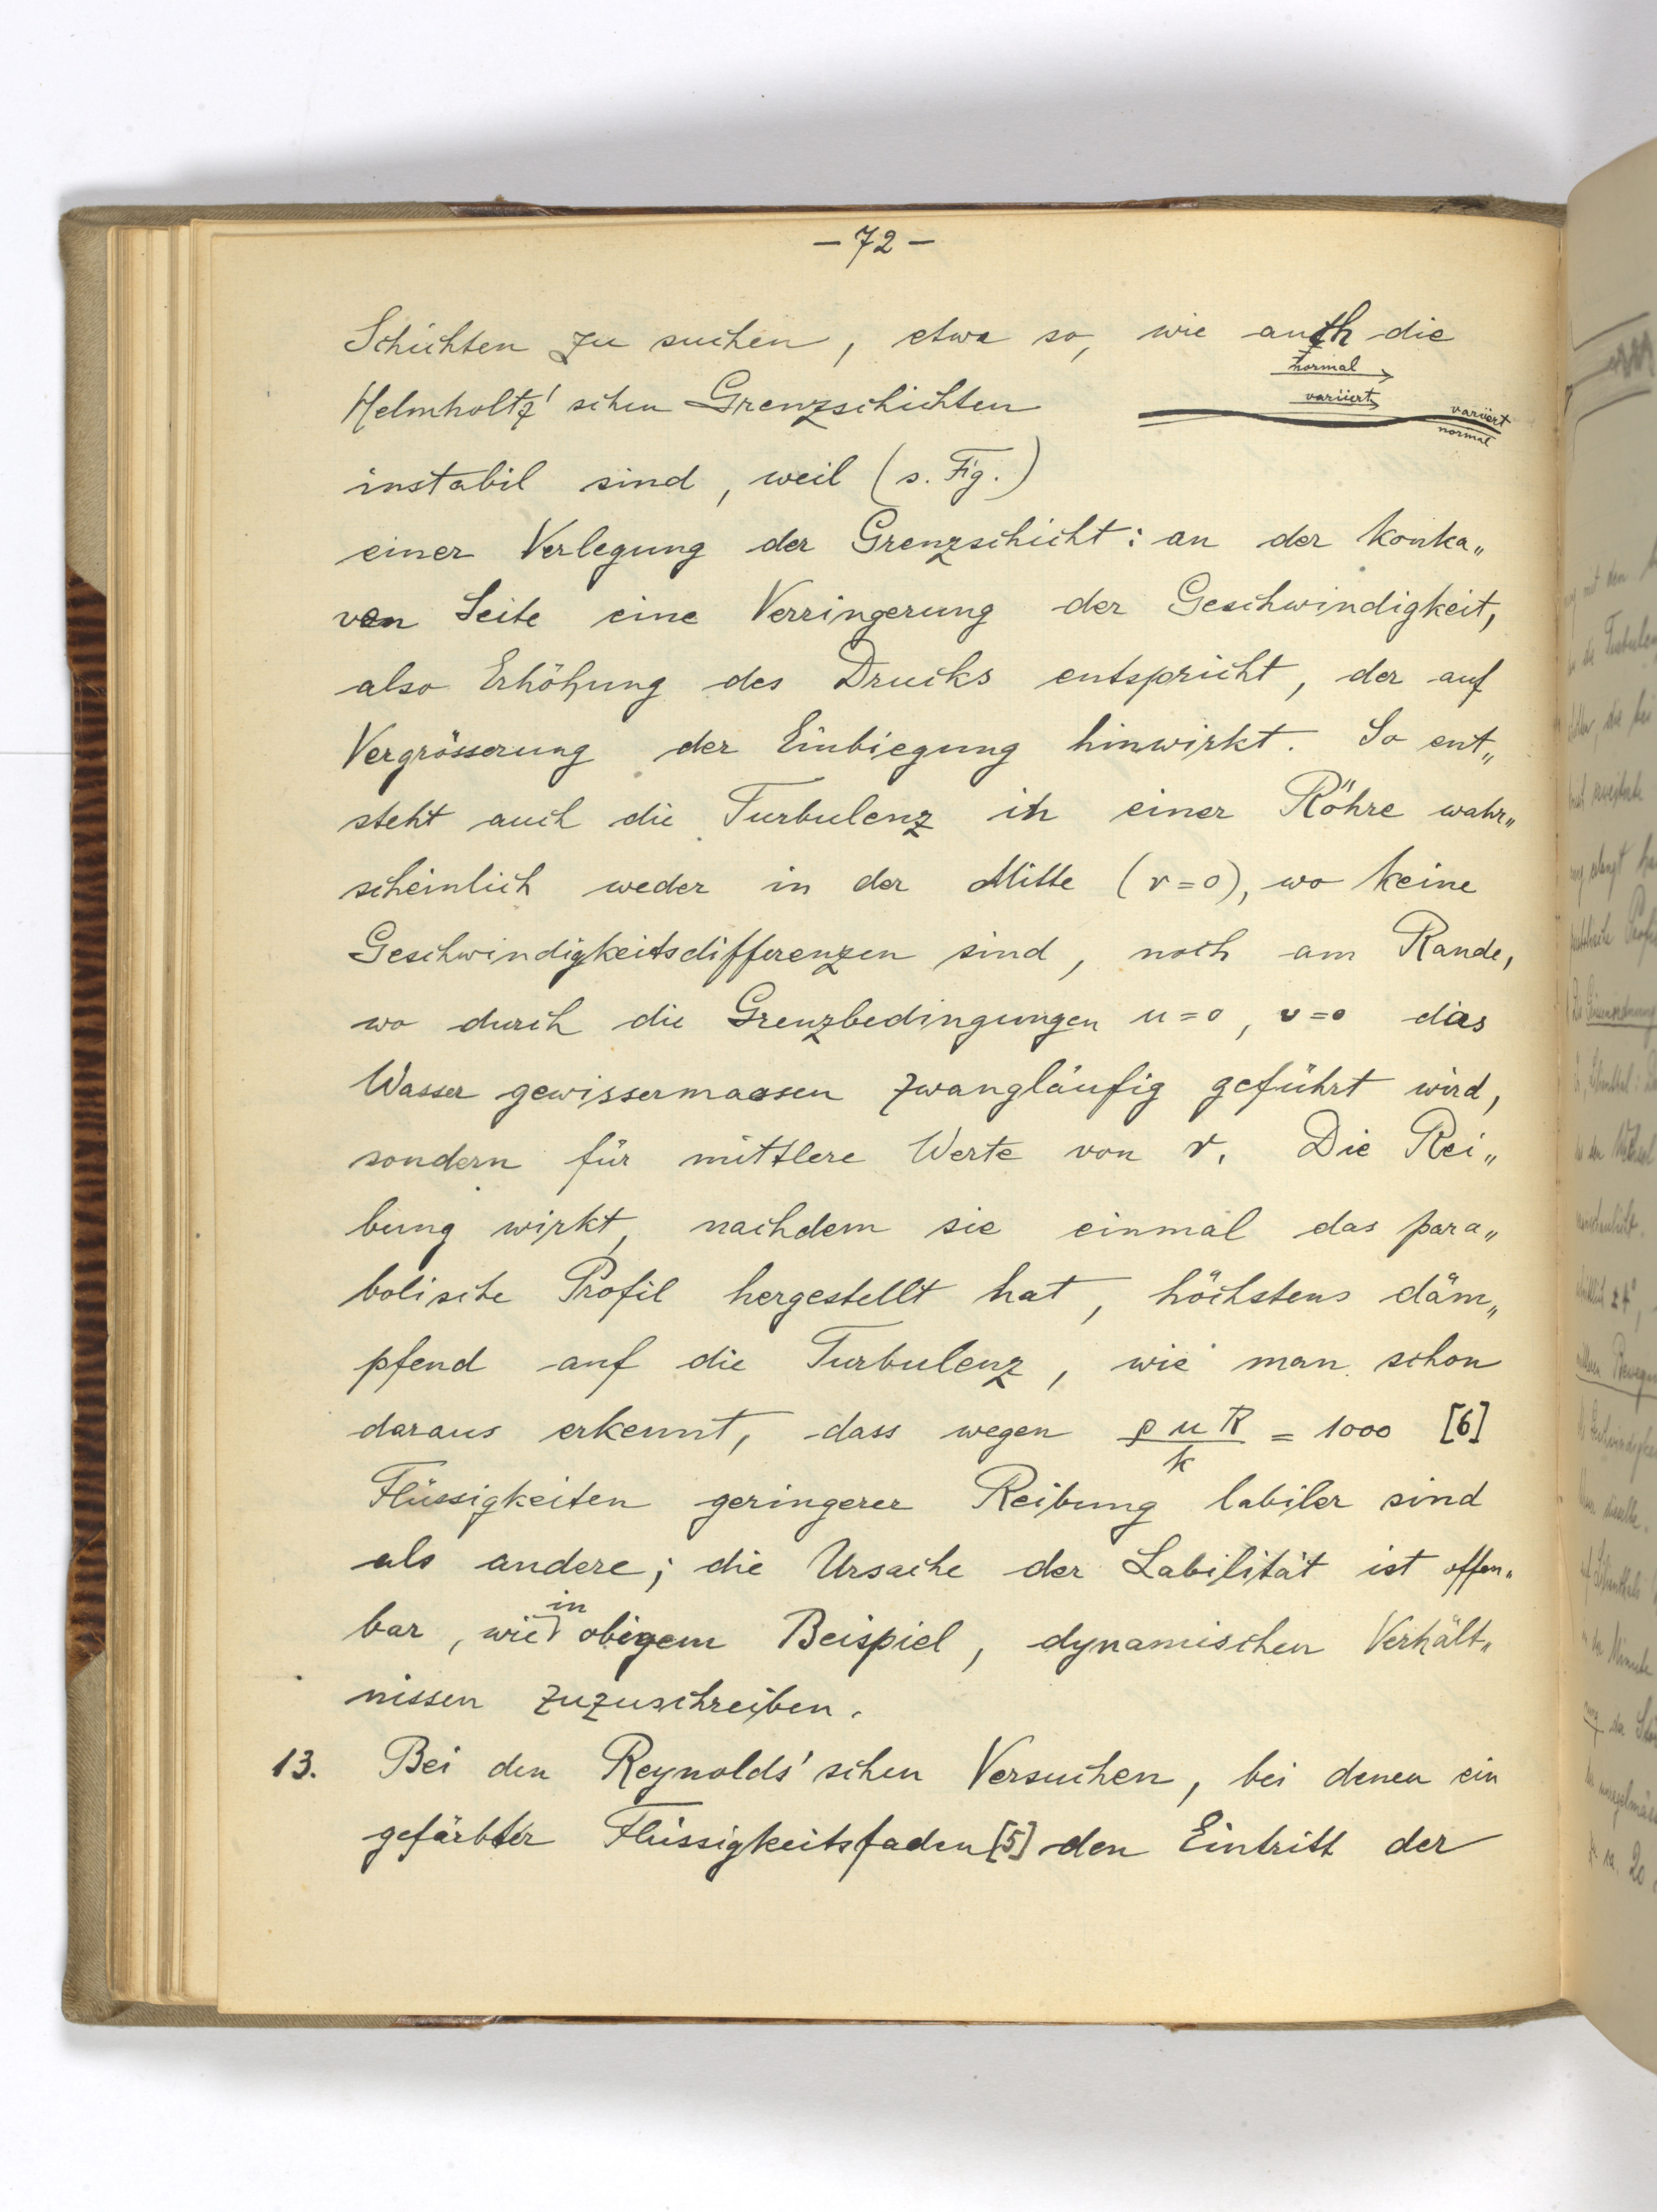 — 72 —
Schichten zu suchen, etwa so, wie auch die
normal
variiert
variiert
normal
Helmholtz'schen Grenzschichten
instabil sind, weil (s. Fig.)
einer Verlegung der Grenzschicht: an der konka„
ven Seite eine Verringerung der Geschwindigkeit,
also Erhöhung des Drucks entspricht, der auf
Vergrösserung der Einbiegung hinwirkt. So ent„
steht auch die Turbulenz in einer Röhre wahr„
scheinlich weder in der Mitte (r=0), wo keine
Geschwindigkeitsdifferenzen sind, noch am Rande,
wo durch die Grenzbedingungen u=0, v=0 das
Wasser gewissermaassen zwangläufig geführt wird,
sondern für mittlere Werte von r. Die Rei„
bung wirkt, nachdem sie einmal das para„
bolische Profil hergestellt hat, höchstens däm„
pfend auf die Turbulenz, wie man schon
daraus erkennt, dass wegen ρ u R / k = 1000 [6]
Flüssigkeiten geringerer Reibung labiler sind
als andere; die Ursache der Labilität ist offen„
bar, wie in obigem Beispiel, dynamischen Verhält„
nissen zuzuschreiben.
13. Bei den Reynolds'schen Versuchen, bei denen ein
gefärbter Flüssigkeitsfaden [5] den Eintritt der